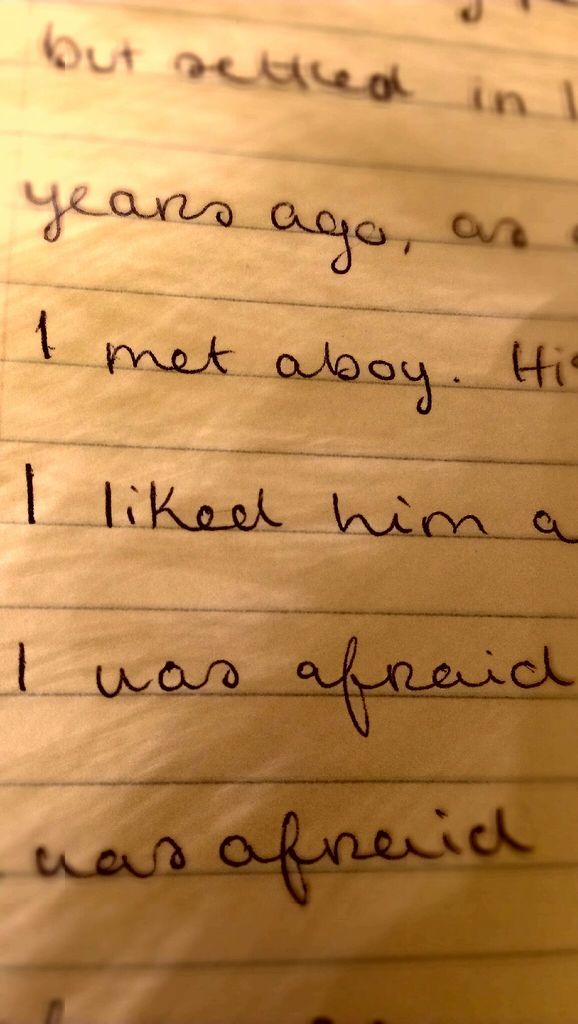 but settled in
years ago, as
I met aboy. His
I liked him a
I was afraid
was afraid